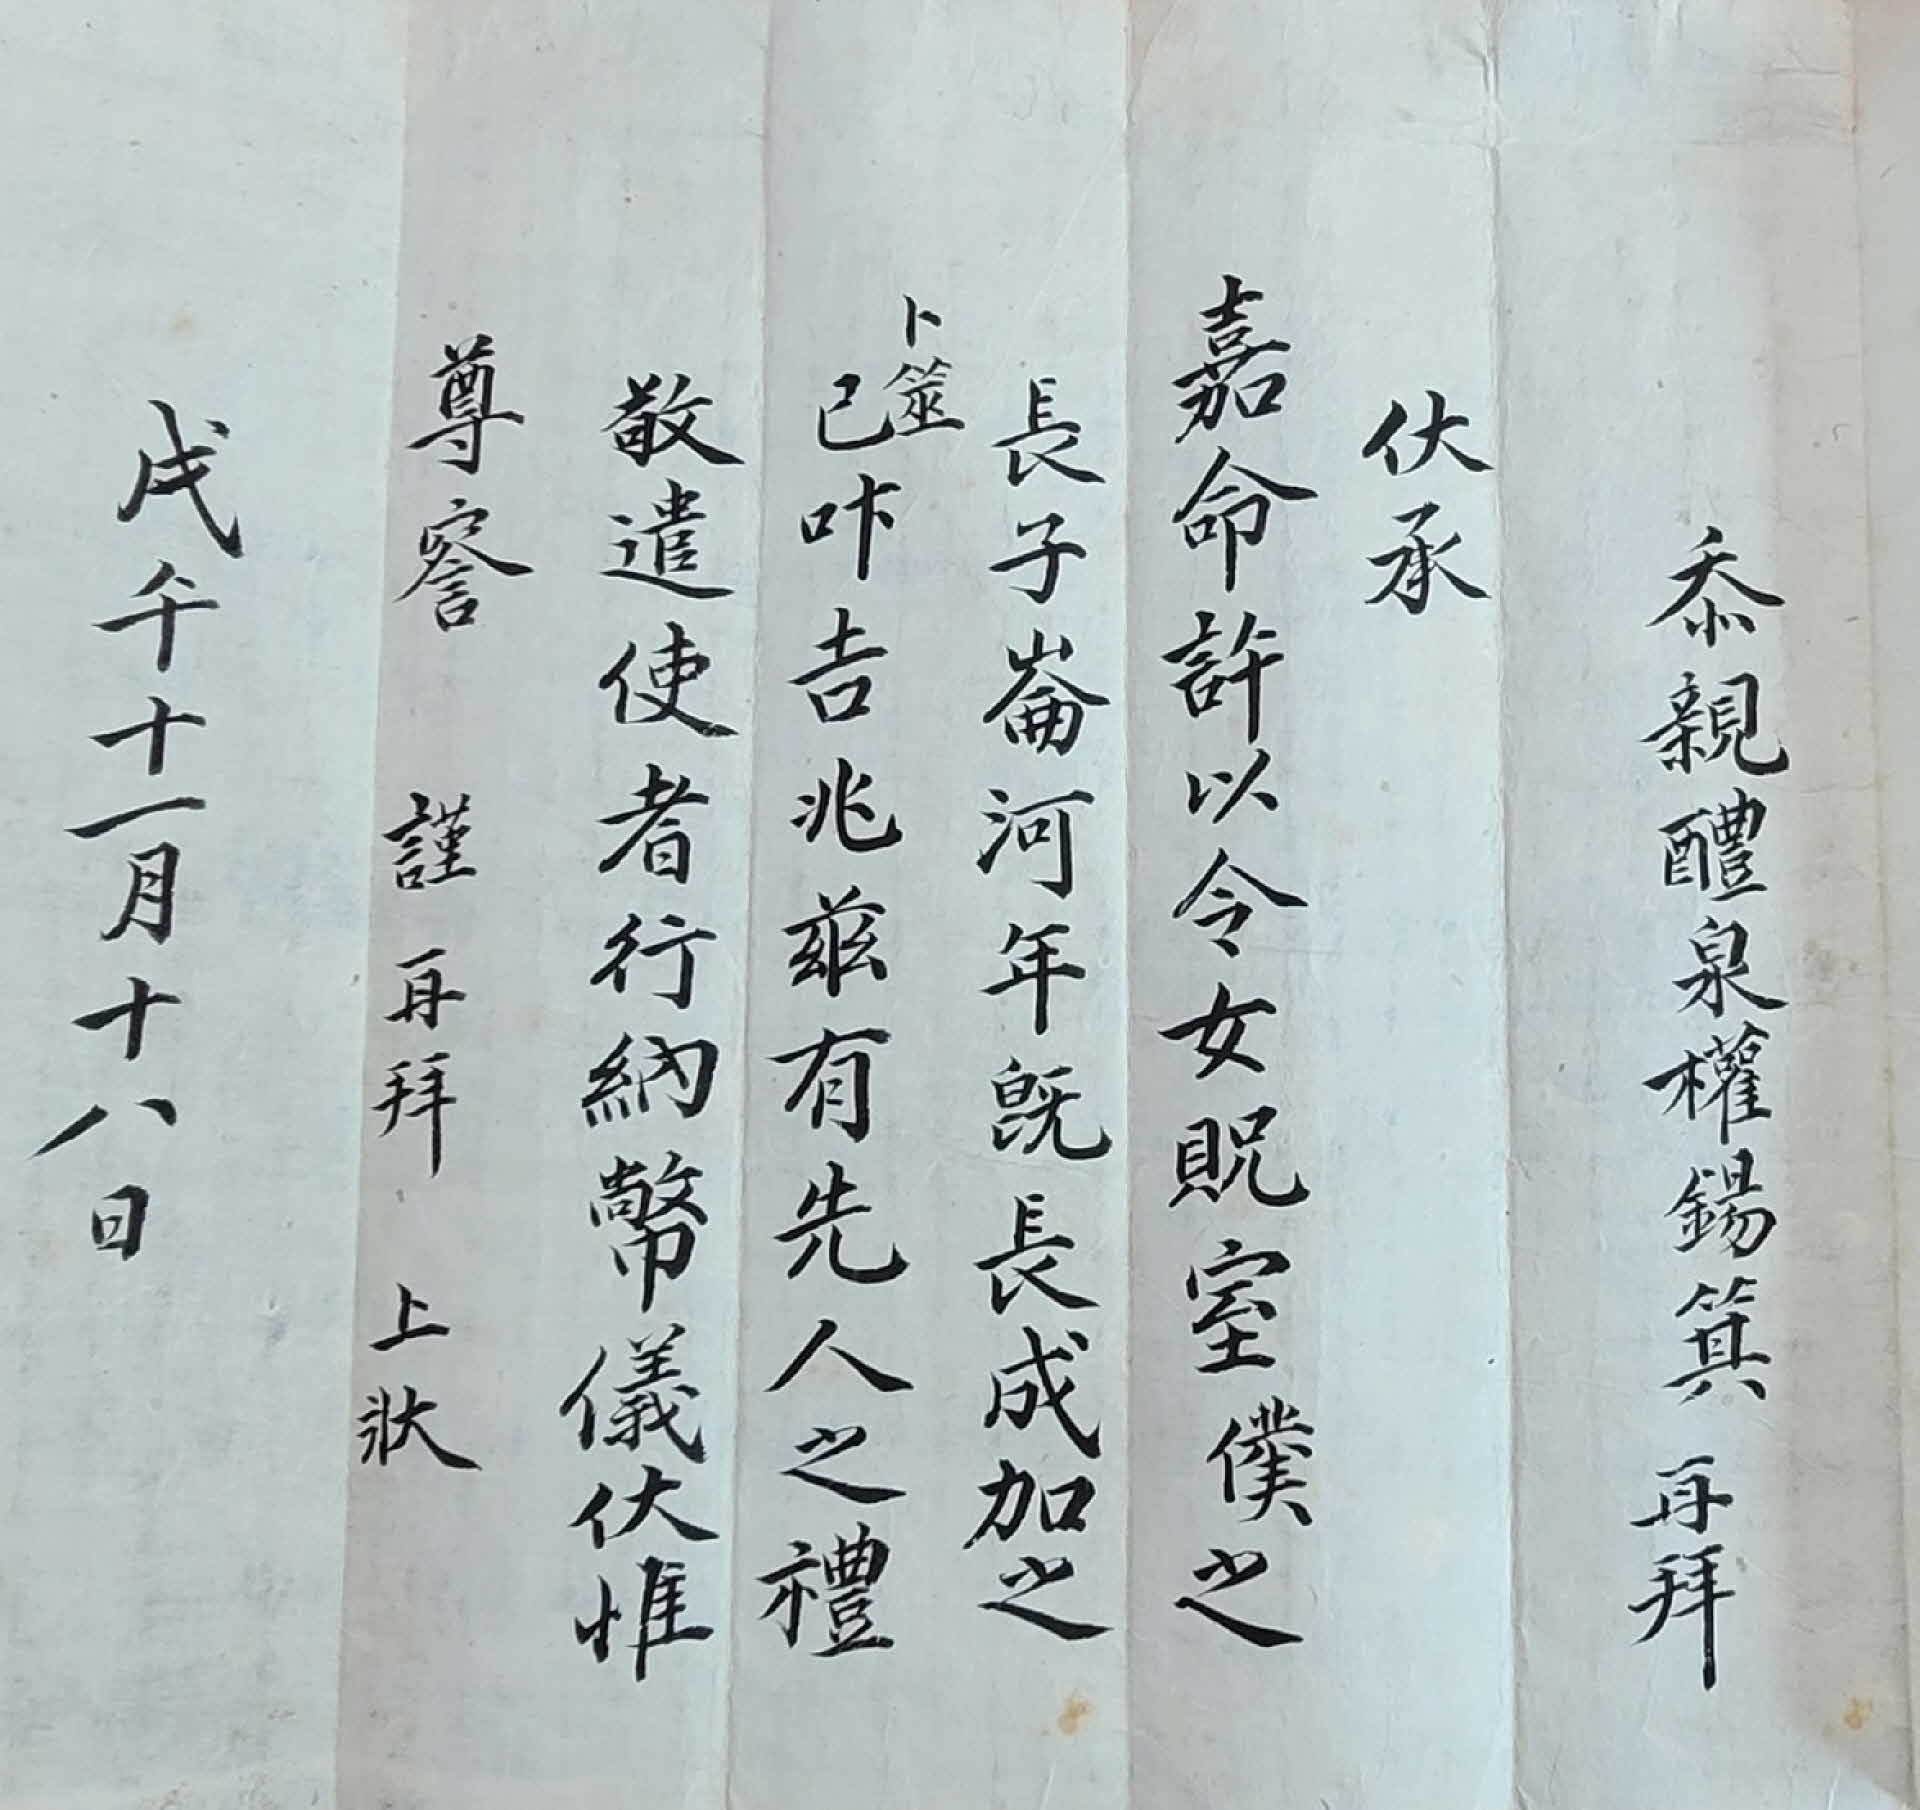 忝親醴泉權錫箕 再拜
伏承
嘉命許以令女貺室僕之
長子崙河年旣長成加之
卜筮
已叶吉兆玆有先人之禮
敬遣使者行納幣儀伏惟
尊察 謹再拜 上狀
戊午十一月十八日